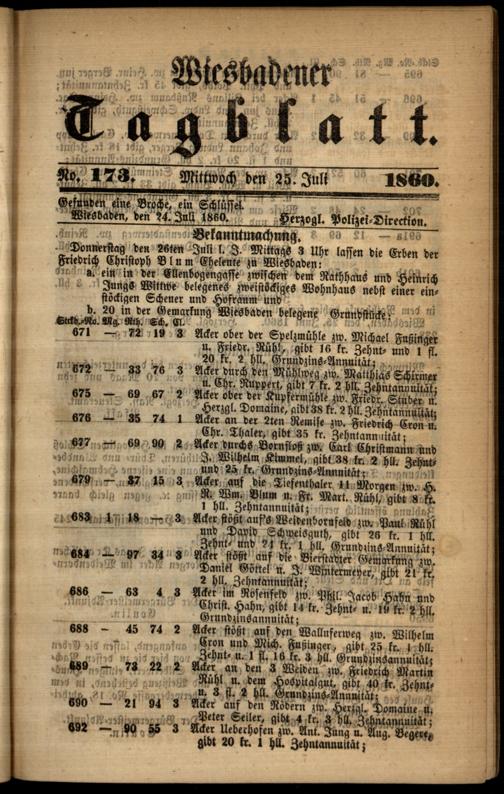 Wiesbadener
Tagblatt.
No. 173. Mittwoch den 25. Juli 1860.
Gefunden eine Broche, ein Schlüssel.
Wiesbaden, den 24. Juli 1860. Herzogl. Polizei-Direction.
Bekanntmachung.
Donnerstag den 26ten Juli l. J. Mittags 3 Uhr lassen die Erben der
Friedrich Christoph Blum Eheleute zu Wiesbaden:
a. ein in der Ellenbogengasse zwischen dem Rathhaus und Heinrich
Jungs Wittwe belegenes zweistöckiges Wohnhaus nebst einer ein-
stöckigen Scheuer und Hofraum und
b. 20 in der Gemarkung Wiesbaden belegene Grundstücke:
Stckb.-No. Mg. Rth. Sch. Cl.
671 — 72 19 3 Acker ober der Spelzmühle zw. Michael Fußinger
u. Friedr. Rühl, gibt 16 kr. Zehnt- und 1 fl.
20 kr. 2 hll. Grundzins-Annuität;
672 — 33 76 3 Acker durch den Mühlweg zw. Matthias Schirmer
u. Chr. Ruppert, gibt 7 kr. 2 hll. Zehntannuität;
675 — 69 67 2 Acker ober der Kupfermühle zw. Friedr. Stuber u.
Herzgl. Domaine, gibt 38 kr. 2 hll. Zehntannuität;
676 — 35 74 1 Acker an der 2ten Remise zw. Friedrich Cron u.
Chr. Thaler, gibt 35 kr. Zehntannuität;
677 — 69 90 2 Acker durchs Bornfloß zw. Carl Christmann und
J. Wilhelm Kimmel, gibt 38 kr. 2 hll. Zehnt-
und 25 kr. Grundzins-Annuität;
679 — 37 15 3 Acker auf die Tiefenthaler 11 Morgen zw. H.
R. Wm. Blum u. Fr. Mart. Rühl, gibt 8 kr.
1 hll. Zehntannuität;
683 1 18 — 3 Acker stößt auf's Weidenbornfeld zw. Paul Rühl
und David Schweisguth, gibt 26 kr. 1 hll.
Zehnt- und 24 kr. 1 hll. Grundzins-Annuität;
684 — 97 34 3 Acker stößt auf die Bierstadter Gemarkung zw.
Daniel Göttel u. J. Wintermeyer, gibt 21 kr.
2 hll. Zehntannuität;
686 — 63 4 3 Acker im Rosenfeld zw. Phil. Jacob Hahn und
Christ. Hahn, gibt 14 kr. Zehnt- u. 19 kr. 2 hll.
Grundzinsannuität;
688 — 45 74 2 Acker stößt auf den Wallufer­weg zw. Wilhelm
Cron und Mich. Fußinger, gibt 25 kr. 1 hll.
Zehnt- u. 1 fl. 16 kr. 3 hll. Grundzinsannuität;
689 — 73 22 2 Acker an den 3 Weiden zw. Friedrich Martin
Rühl u. dem Hospitalgut, gibt 40 kr. Zehnt-
u. 3 fl. 2 hll. Grundzins-Annuität;
690 — 21 94 3 Acker auf den Rödern zw. Herzgl. Domaine u.
Peter Seiler, gibt 4 kr. 3 hll. Zehntannuität;
692 — 90 55 3 Acker Ueberhofen zw. Ant. Jung u. Aug. Begere,
gibt 20 kr. 1 hll. Zehntannuität;